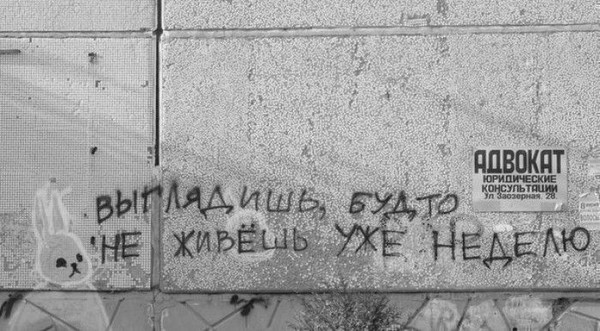 АДВОКАТ
ЮРИДИЧЕСКИЕ
КОНСУЛЬТАЦИИ
Ул Заозерная. 28.
ВЫГЛЯДИШЬ, БУДТО
НЕ ЖИВЁШЬ УЖЕ НЕДЕЛЮ